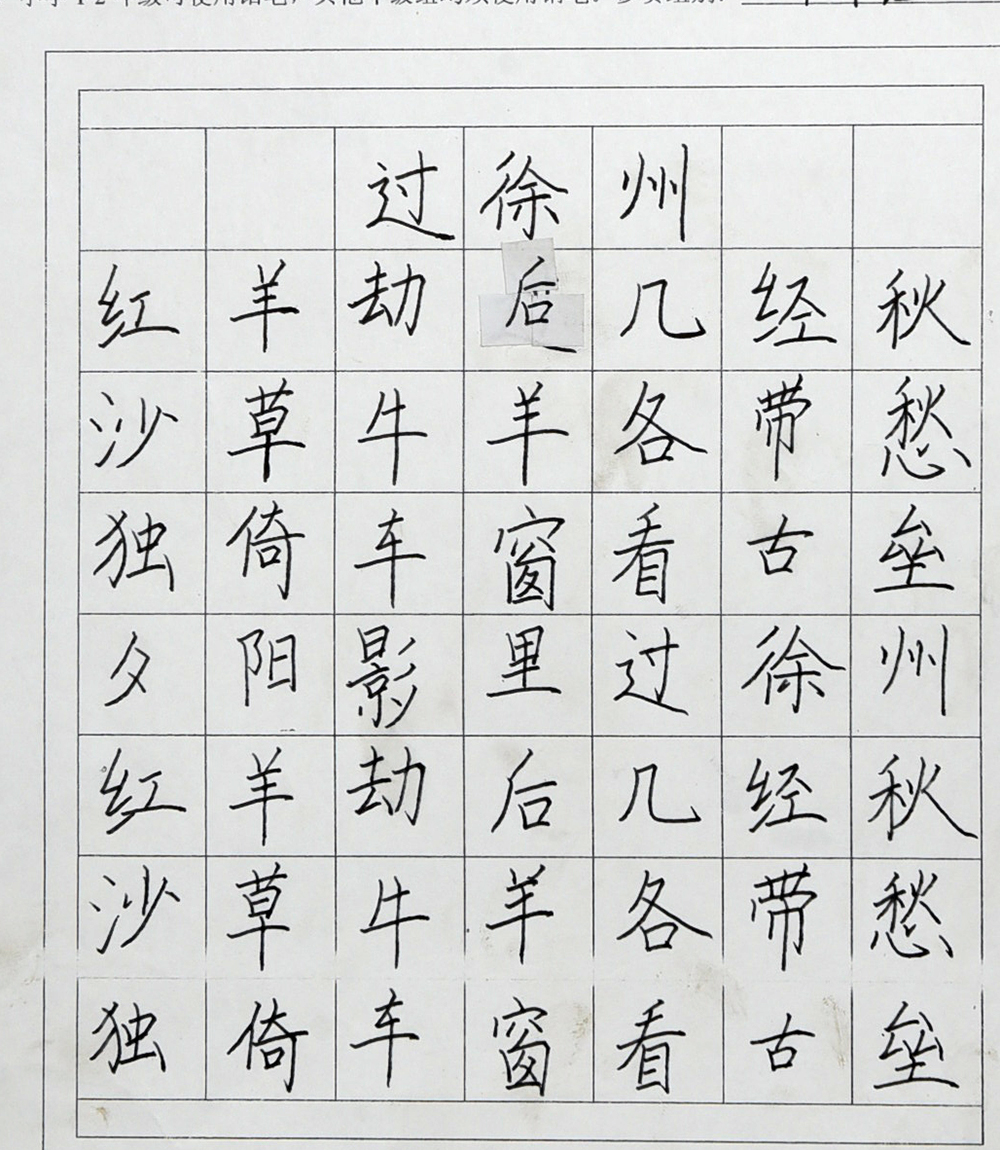 过徐州
红羊劫后几经秋
沙草牛羊各带愁
独倚车窗看古垒
夕阳影里过徐州
红羊劫后几经秋
沙草牛羊各带愁
独倚车窗看古垒